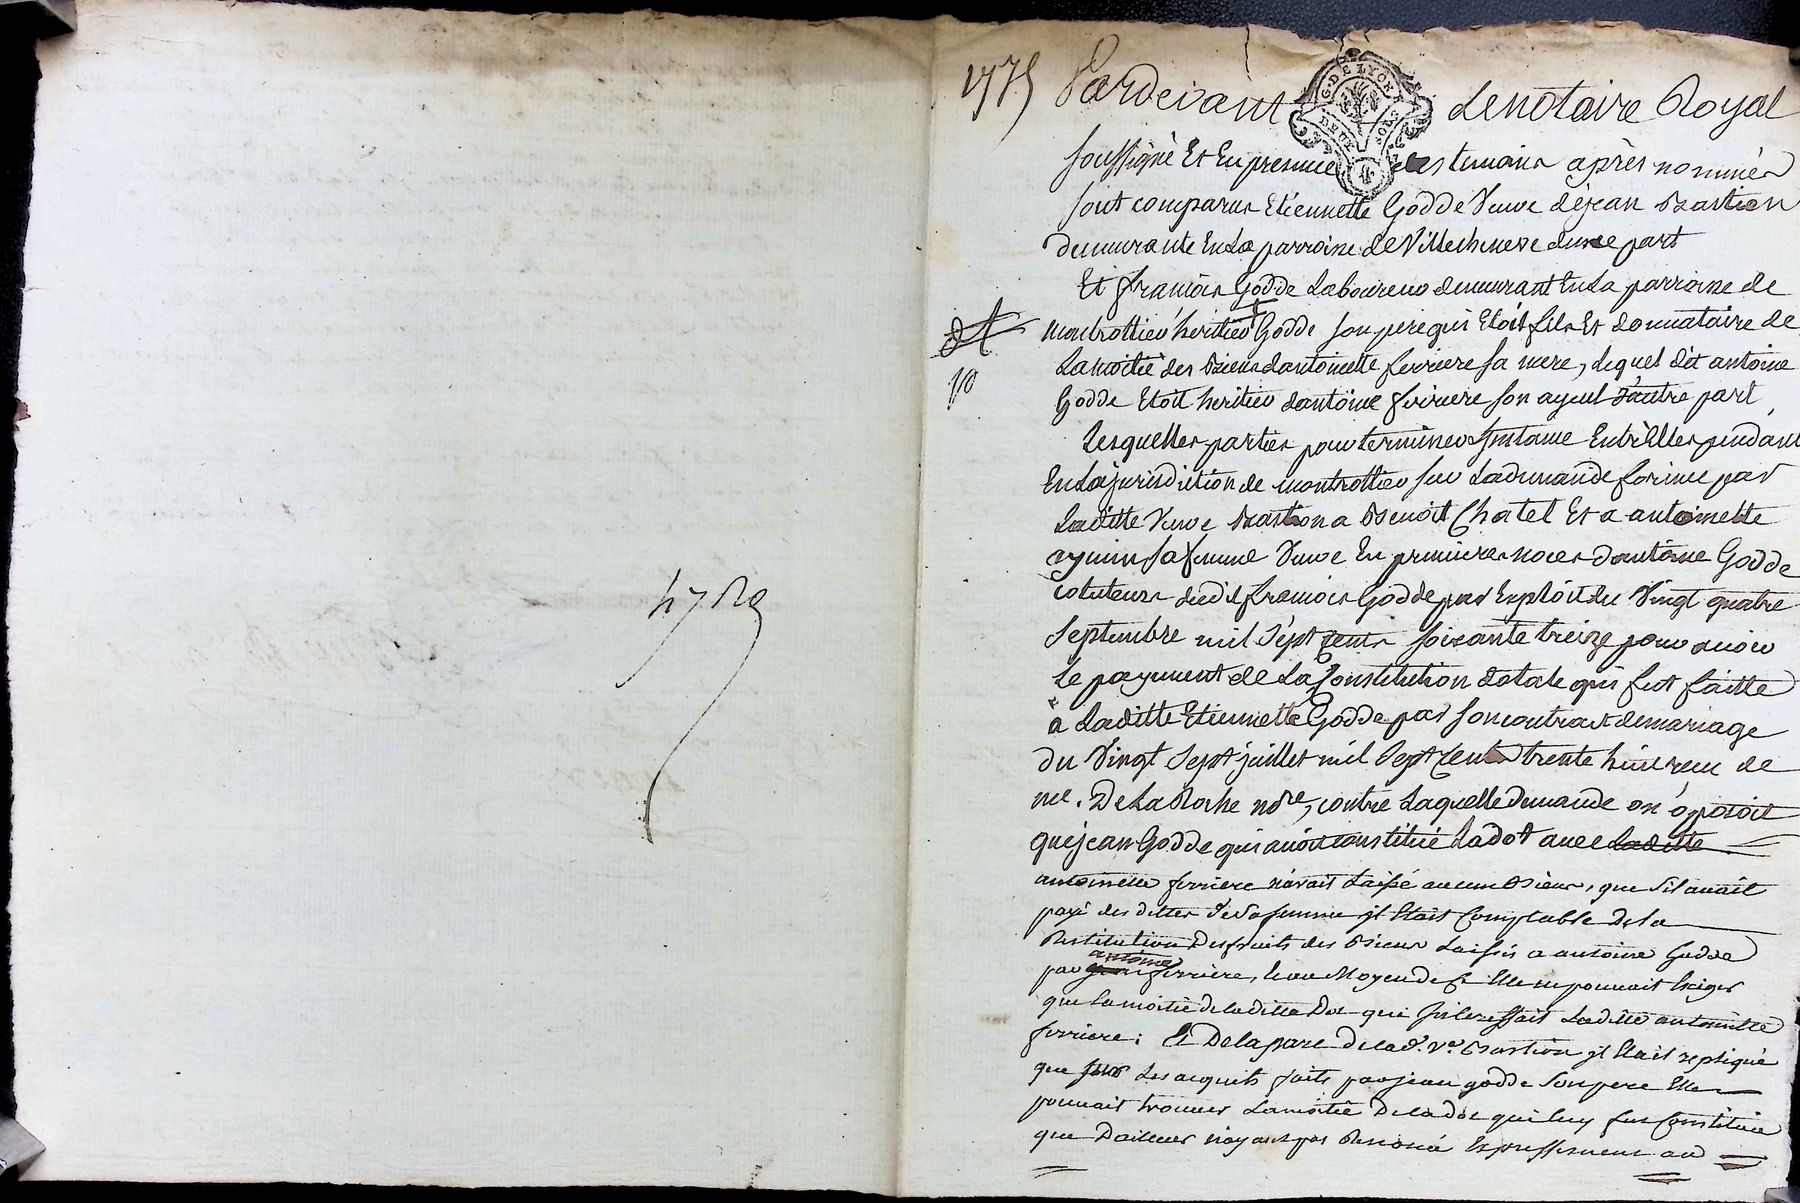 1775
Pardevant Le notaire Royal
G. DE LYON
DEUX SOLS
soussigné Et En presence des temoins après nommés
sont comparus Etiennette Godde Veuve de jean Bastion
demeurante En La parroisse de Villecheneve d'une part
Et françois Godde Laboureur demeurant En La parroisse de
montrottier héritier Godde son pere qui Etoit fils Et donnataire de
La moitié des Biens d'antoinette ferriere sa mere, lequel dit antoine
Godde Etoit héritier d'antoine ferriere son ayeul d'autre part
Lesquelles parties pour terminer L'instance Entr'Elles pendante
En La jurisdiction de montrottier sur La demande formée par
Laditte Veuve Bastion a Benoit Chatel Et a antoinette
sa femme Veuve En premieres noces d'antoine Godde
cotuteurs dudit françois Godde par Exploit du Vingt quatre
Septembre mil Sept Cents soixante treize pour avoir
Le payement de La Constitution dotale qui fut faitte
à Laditte Etiennette Godde par son contract de mariage
du Vingt Sept juillet mil Sept Cents trente huit reçu de
me. De La Roche nore, contre Laquelle demande on oposoit
que jean Godde qui avoit constitué La dot avec Laditte
antoinette ferriere n'avait Laissé aucun Biens, que s'il avait
payé des dettes de Sa femme il Etait Comptable De la
Restitution Des fruits des Biens Laissés a antoine Godde
par antoine ferriere, qu'au Moyen de Ce Elle ne pouvait Exiger
que La moitié de laditte Dot qui interessait Laditte antoinette
ferriere; Et De la part de lad. Ve. Bastion il Etait repliqué
que sur Les acquits faits par jean godde Son pere Elle
pouvait trouver La moitié De la dot qui luy fut Constituée
que D'ailleurs n'ayant pas Renoncé Expressement au